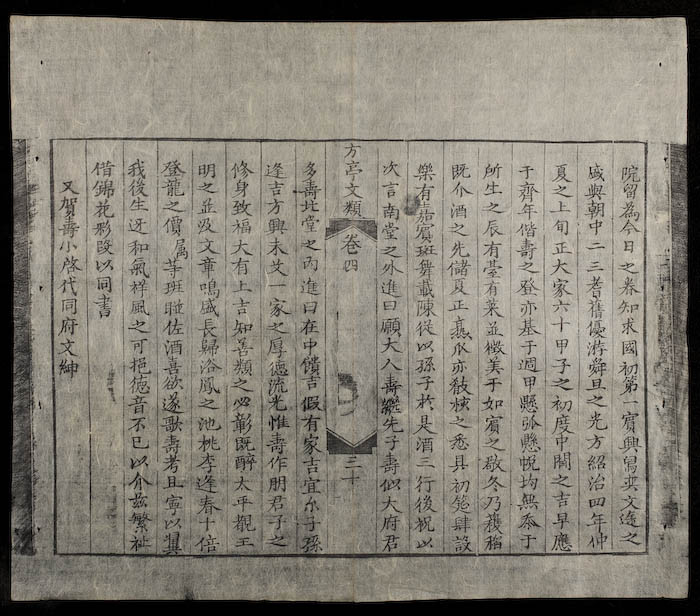 院留為今日之券知求國初第一賓興寫夾文逸之
盛與朝中二三耆舊優游舜旦之光方紹治四年仲
夏之上旬正大家六十甲子之初度中閫之吉早應
于齊年偕壽之登亦基于週甲懸弧懸帨均無忝于
所生之辰有臺有萊並徵美于如賓之敬冬乃穫稻
既介酒之先儲夏正烹瓜亦殽核之悉具初筵肆設
樂有嘉賓班舞載陳從以孫子於是酒三行後祝以
次言南堂之外進曰願大人壽繼先子壽似大府君
方亭文類 卷四 三十
多壽北堂之內進曰在中饋吉假有家吉宜尔子孫
逢吉方興未艾一家之厚德流光惟壽作朋君子之
修身致福大有上吉知善類之必彰既醉太平觀王
明之並汲文章鳴盛長歸浴鳳之池桃李逢春十倍
登龍之價属等班聯佐酒喜欲遂歌壽考且寧以翼
我後生迓和氣祥風之可挹德音不已以介茲繁祉
借錦花彩段以同書
又賀壽小啓代同府文紳